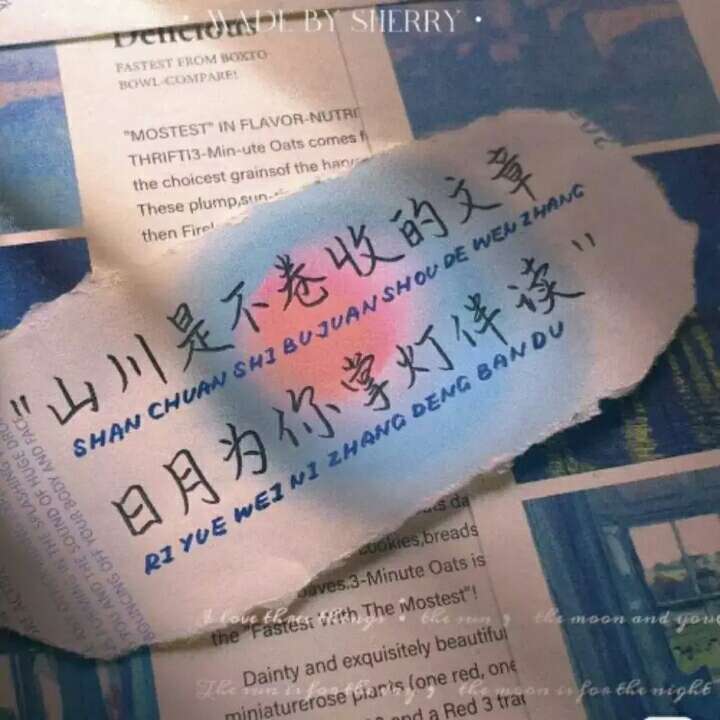 • MADE BY SHERRY •
Delicious
FASTEST FROM BOXTO
BOWL-COMPARE!
"MOSTEST" IN FLAVOR-NUTRI
THRIFTI3-Min-ute Oats comes f
the choicest grainsof the
These plump,sun-
then
"山川是不卷收的文章
SHAN CHUAN SHI BU JUAN SHOU DE WEN ZHANG
日月为你掌灯伴读"
RI YUE WEI NI ZHANG DENG BAN DU
IN THE SPLASHING
YOU AND THE SOUND OF HUGE DROP
BOUNCING OFF YOUR BODY AND FACE
cookies,breads
3-Minute Oats is
the "Fastest With The Mostest"!
I love three things • the sun , the moon and your
Dainty and exquisitely beautiful
The sun is for the day , the moon is for the night
miniaturerose plants (one red, one
and a Red 3